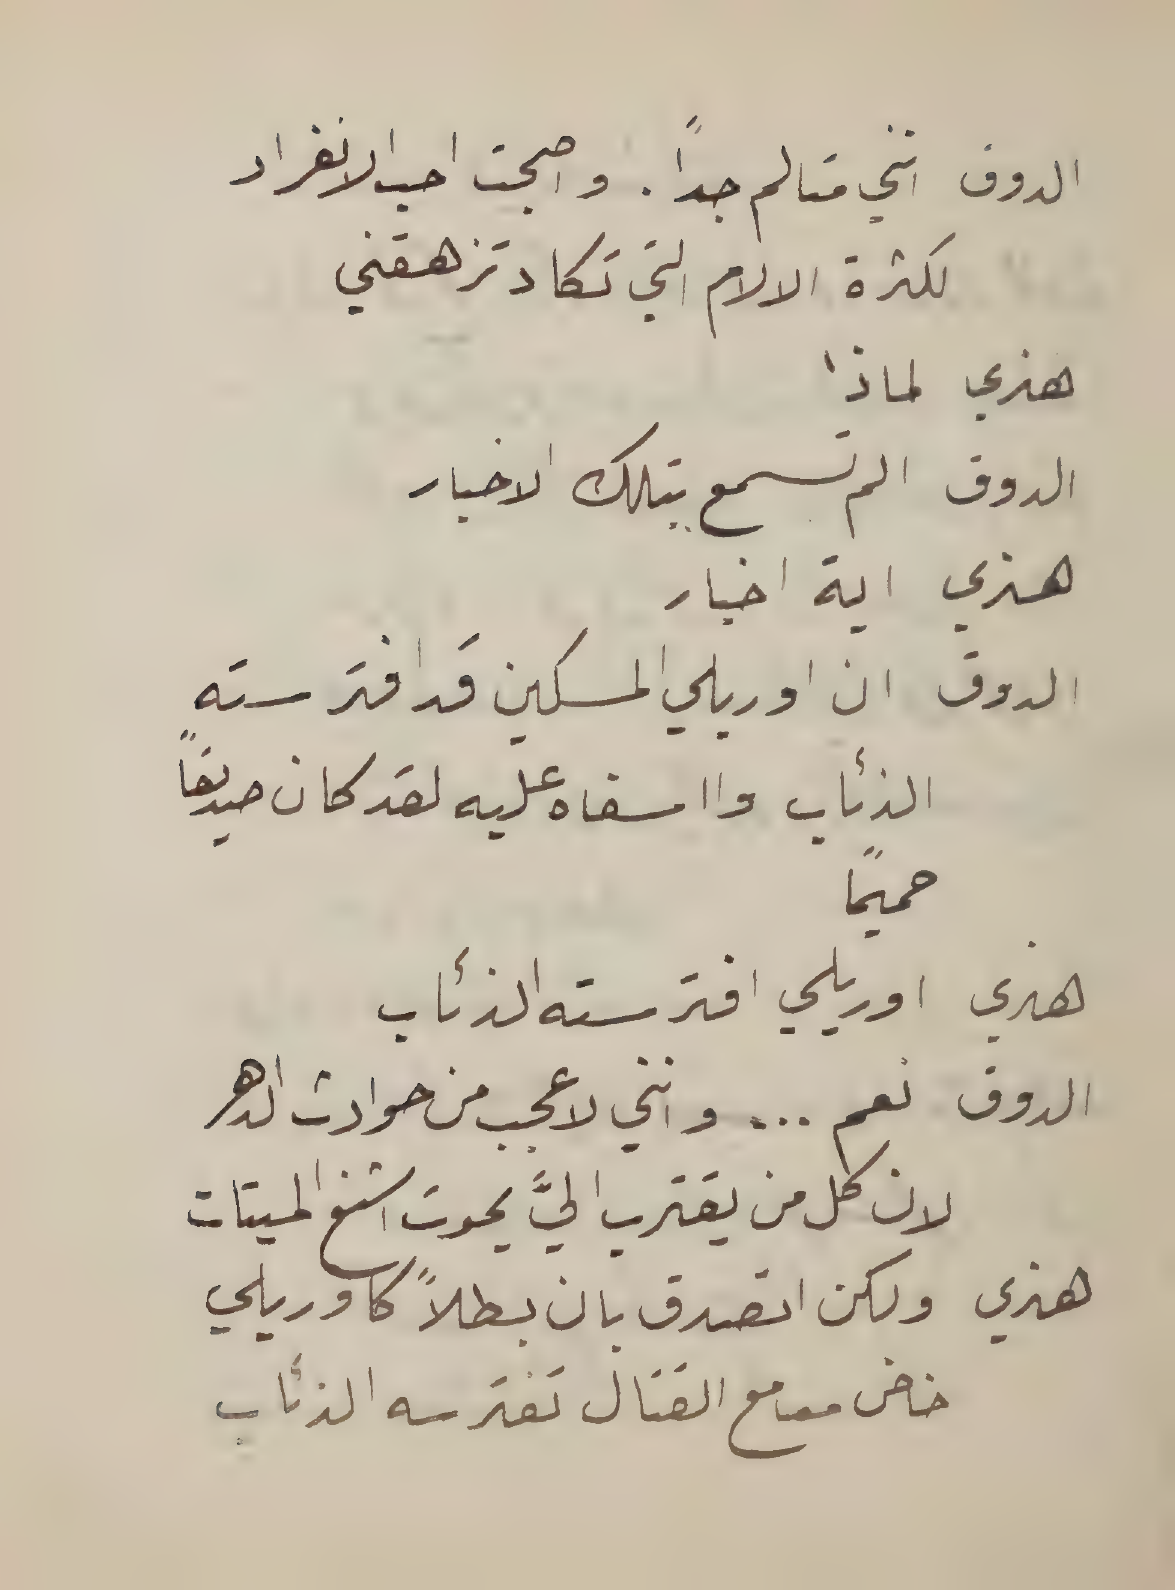 الدوق انني متالم جداً . واصبحت احب الانفراد
لكثرة الالام التي تكاد تزهقني
هنري لماذا
الدوق الم تسمع بتلك الاخبار
هنري اية اخبار
الدوق ان اوريلي المسكين قد افترسته
الذئاب وا اسفاه عليه لقد كان صديقاً
حميمًا
هنري اوريلي افترسته الذئاب
الدوق نعم ... وانني لاعجب من حوادث الدهر
لان كل من يقترب اليَّ يموت اشنع الميتات
هنري ولكن اتصدق بان بطلاً كاوريلي
خاض معامع القتال تفترسه الذئاب